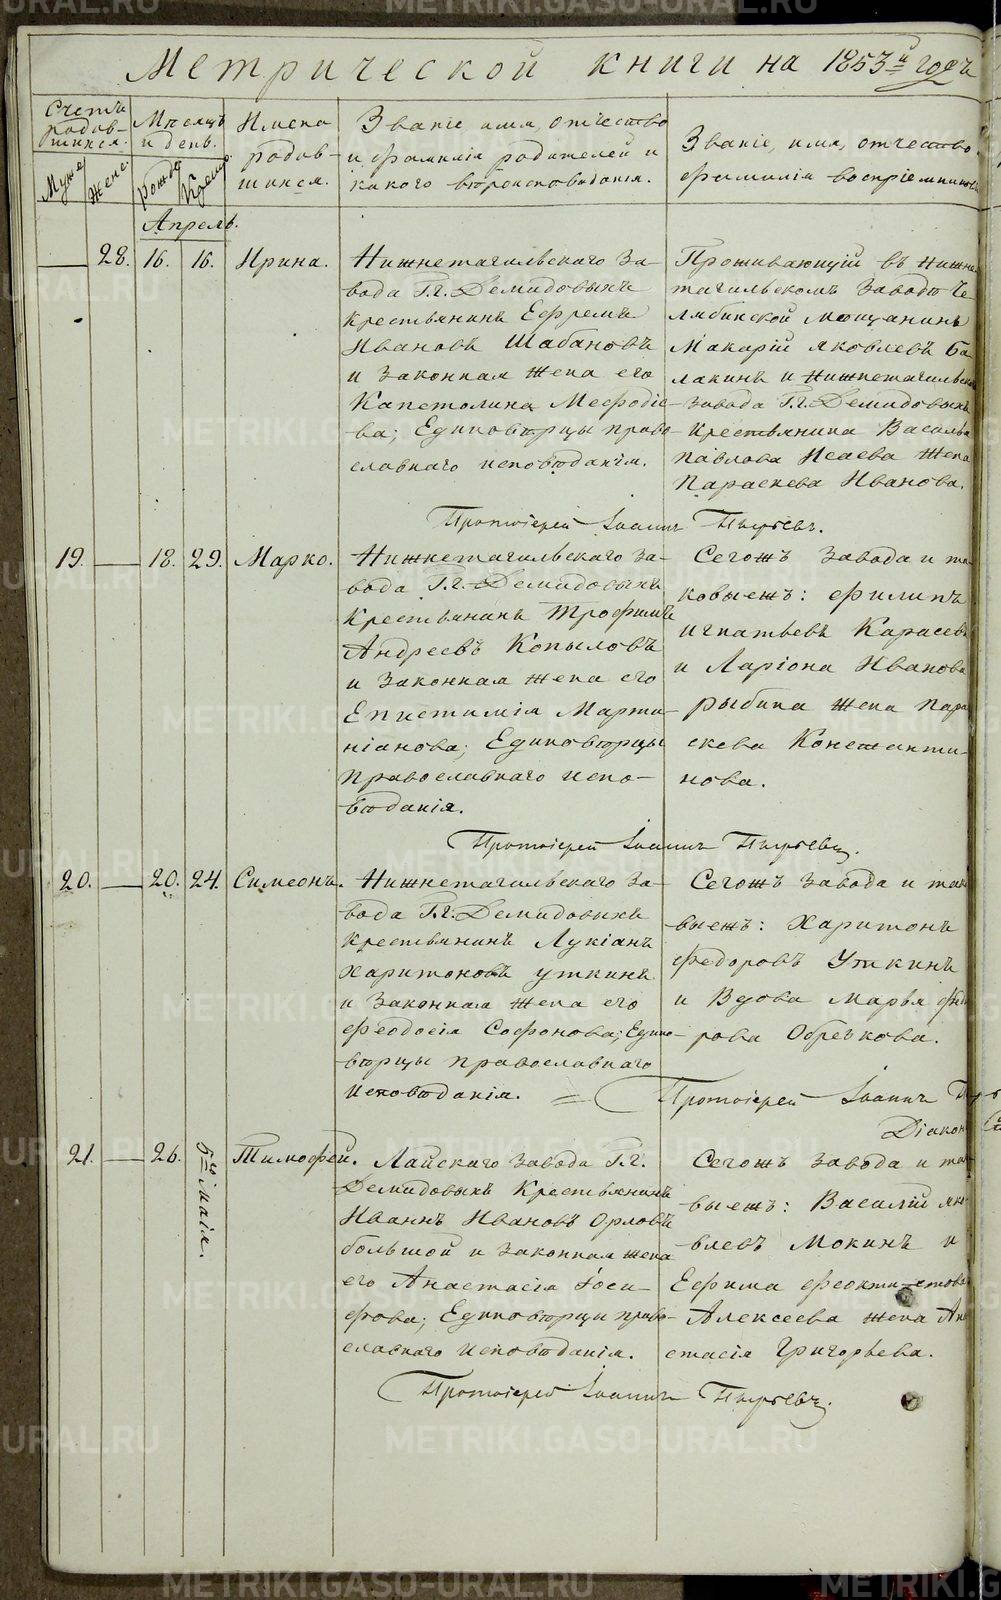 Метрической книги на 1853й годъ
Счетъ родившихся.
Муже
Жене
Мѣсяцъ и день.
рожд.
Крещ.
Имена родившихся.
Званіе имя, отчество
и фамилія родителей и
какого вѣроисповѣданія.
Званіе, имя, отчество
фамилія воспріемниковъ
Апрель.
28. 16. 16. Ирина.
Нижнетагильскаго За-
вода Г.г. Демидовыхъ
крестьянинъ Ефремъ
Ивановъ Шабановъ
и законная жена его
Капетолина Мефодіе-
ва; Единовѣрцы право-
славнаго исповѣданія.
Проживающій въ Нижне-
тагильскомъ Заводѣ Че-
лябинской мѣщанинъ
Макарій Яковлевъ Ба-
лакинъ и Нижнетагильска
завода Г.г. Демидовыхъ
Крестьянина Василья
Павлова Исаева жена
Параскева Иванова.
Протоіерей Іоаннъ Пырьевъ.
19. 18. 29. Марко.
Нижнетагильскаго За-
вода Г.г. Демидовыхъ
Крестьянинъ Трофимъ
Андреевъ Копыловъ
и законная жена его
Епистимія Марти-
ніанова; Единовѣрцы
православнаго испо-
вѣданія.
Сегожъ завода и та-
ковыежъ: Филипъ
Игнатьевъ Карасевъ
и Ларіона Иванова
рыбина жена Пара-
скева Константи-
нова.
Протоіерей Іоаннъ Пырьевъ.
20. 20. 24. Симеонъ.
Нижнетагильскаго За-
вода Г.г. Демидовыхъ
крестьянинъ Лукіанъ
Харитоновъ Уткинъ
и Законная жена его
Феодосія Софонова; Едино-
вѣрцы православнаго
исповѣданія.
Сегожъ завода и тако
выежъ: Харитонъ
Федоровъ Уткинъ
и Вдова Марья
рова Обрѣзкова.
Протоіерей Іоаннъ
Діакон
21. 26. 5го Маія. Тимофей.
Лайскаго завода Г.г.
Демидовыхъ Крестьянинъ
Иваннъ Ивановъ Орловъ
большой и законная жена
его Анастасія Іоси-
фова; Единовѣрцы право-
славнаго исповѣданія.
Сегожъ завода и тако
выежъ: Василій Яко-
влевъ Мокинъ и
Ефима Феоктистова
Алексеева жена Ана
стасія Григорьева.
Протоіерей Іоаннъ Пырьевъ.
METRIKI.GASO-URAL.RU